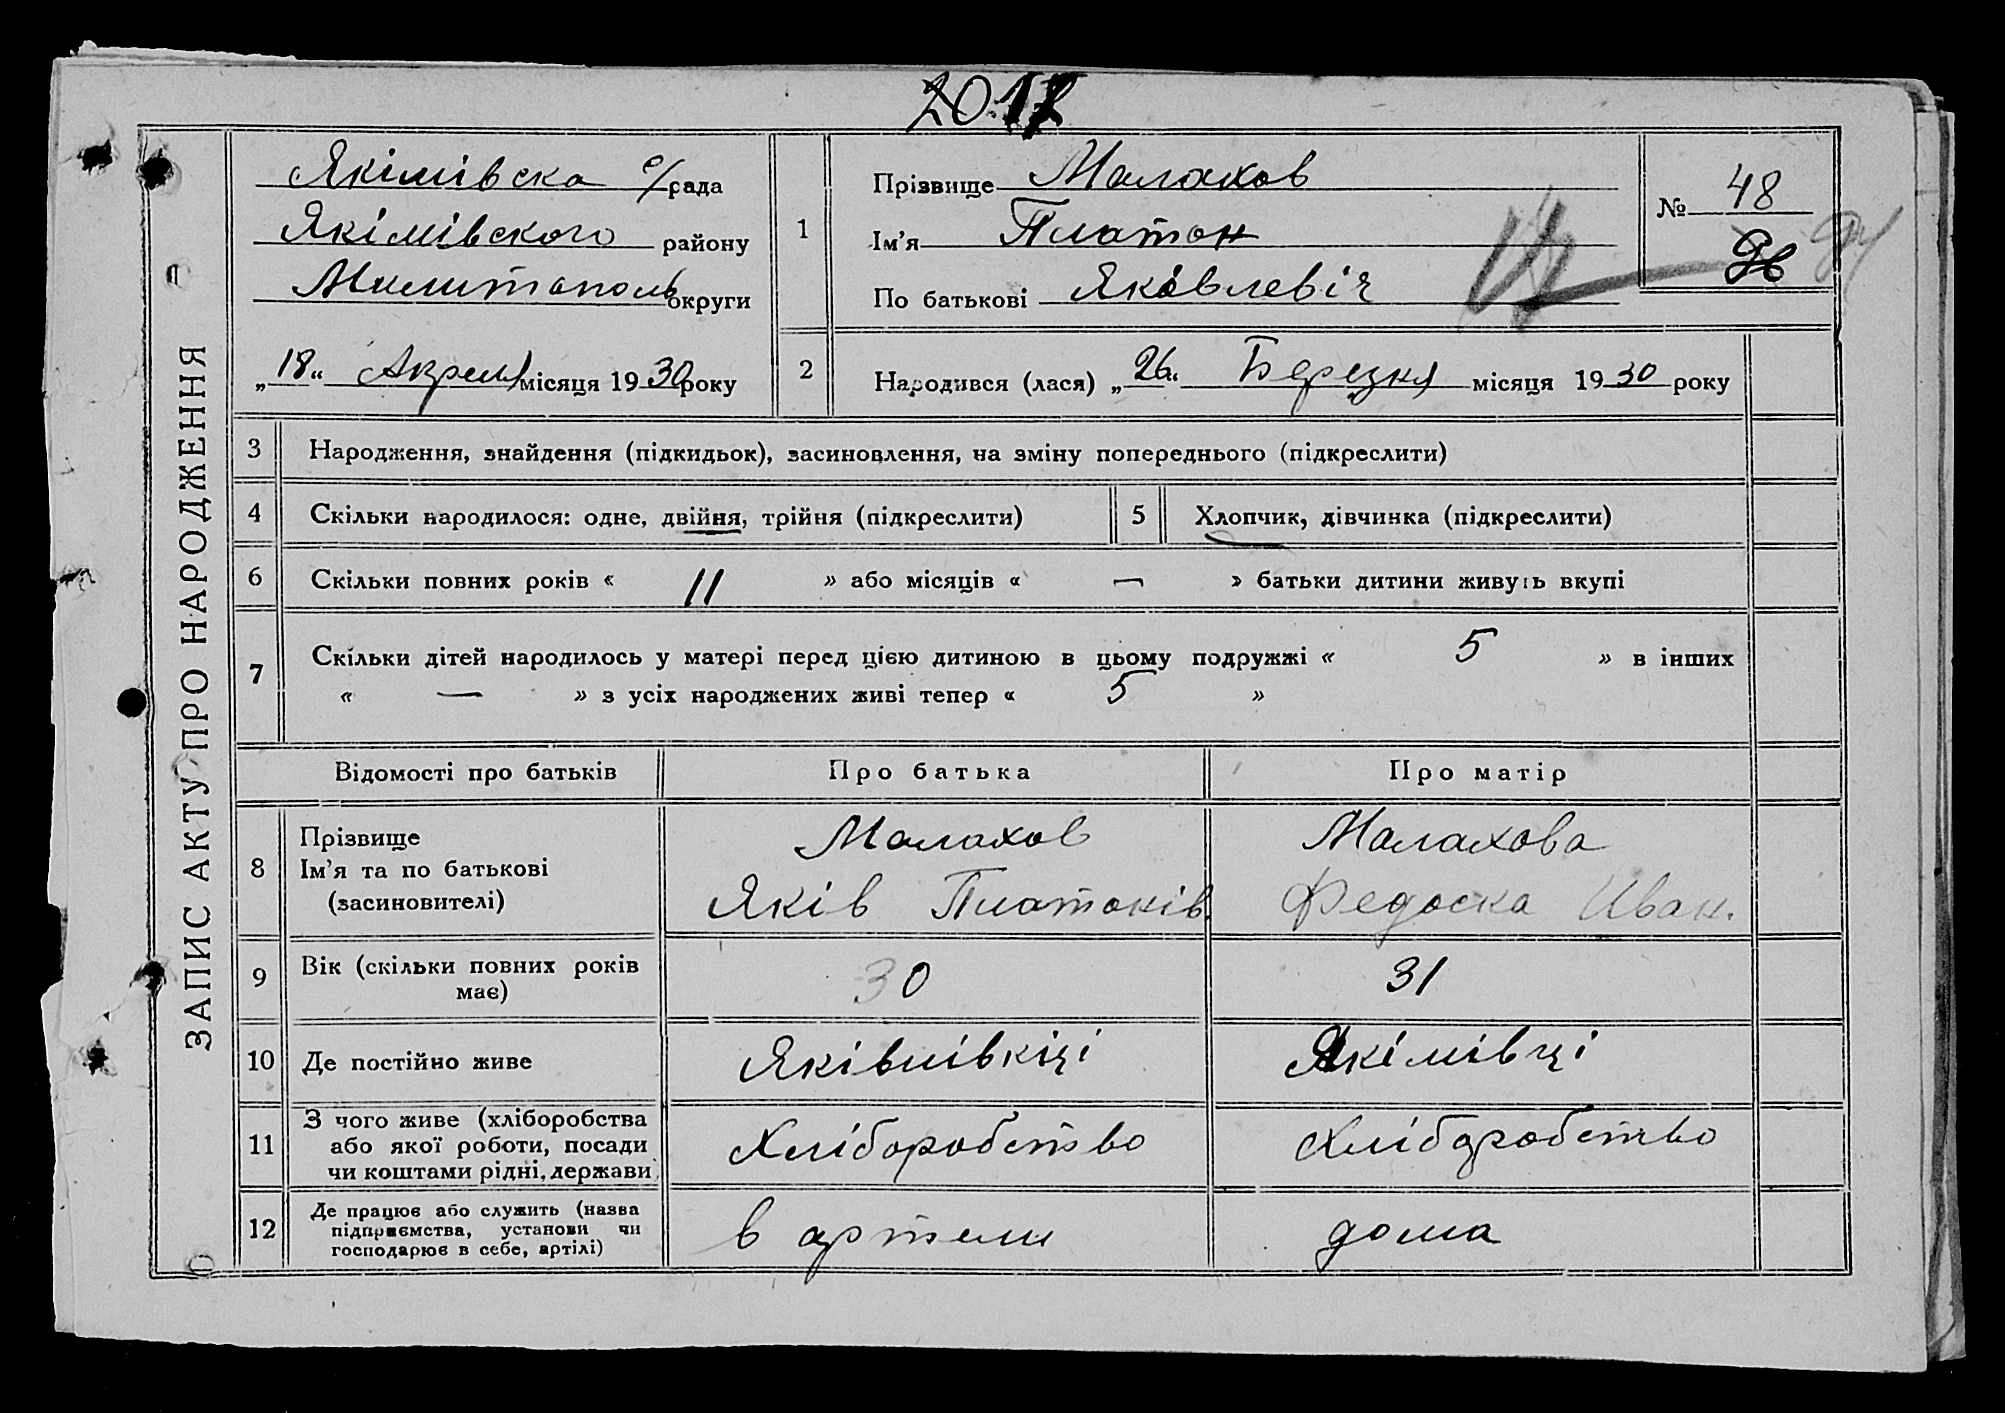 ЗАПИС АКТУ ПРО НАРОДЖЕННЯ
Якімівска с/рада
Якімівского району
Мелитополь округи
„18“ Апреля місяця 1930 року
1 Прізвище Малахов
Ім'я Платон
По батькові Яковлевіч
№ 48
2 Народився (лася) „26“ Березня місяця 1930 року
3 Народження, знайдення (підкидьок), засиновлення, на зміну попереднього (підкреслити)
4 Скільки народилося: одне, двійня, трійня (підкреслити) 5 Хлопчик, дівчинка (підкреслити)
6 Скільки повних років « 11 » або місяців « — » батьки дитини живуть вкупі
7 Скільки дітей народилось у матері перед цією дитиною в цьому подружжі « 5 » в інших
« — » з усіх народжених живі тепер « 5 »
Відомості про батьків Про батька Про матір
8 Прізвище
Ім'я та по батькові
(засиновителі)
Малахов
Яків Платонів.
Малахова
Федоска Иван.
9 Вік (скільки повних років
має)
30
31
10 Де постійно живе
Яківмівкіці
Якімівці
11 З чого живе (хліборобства
або якої роботи, посади
чи коштами рідні, держави
Хліборобство
Хліборобство
12 Де працює або служить (назва
підприємства, установи чи
господарює в себе, артілі)
в артели
дома